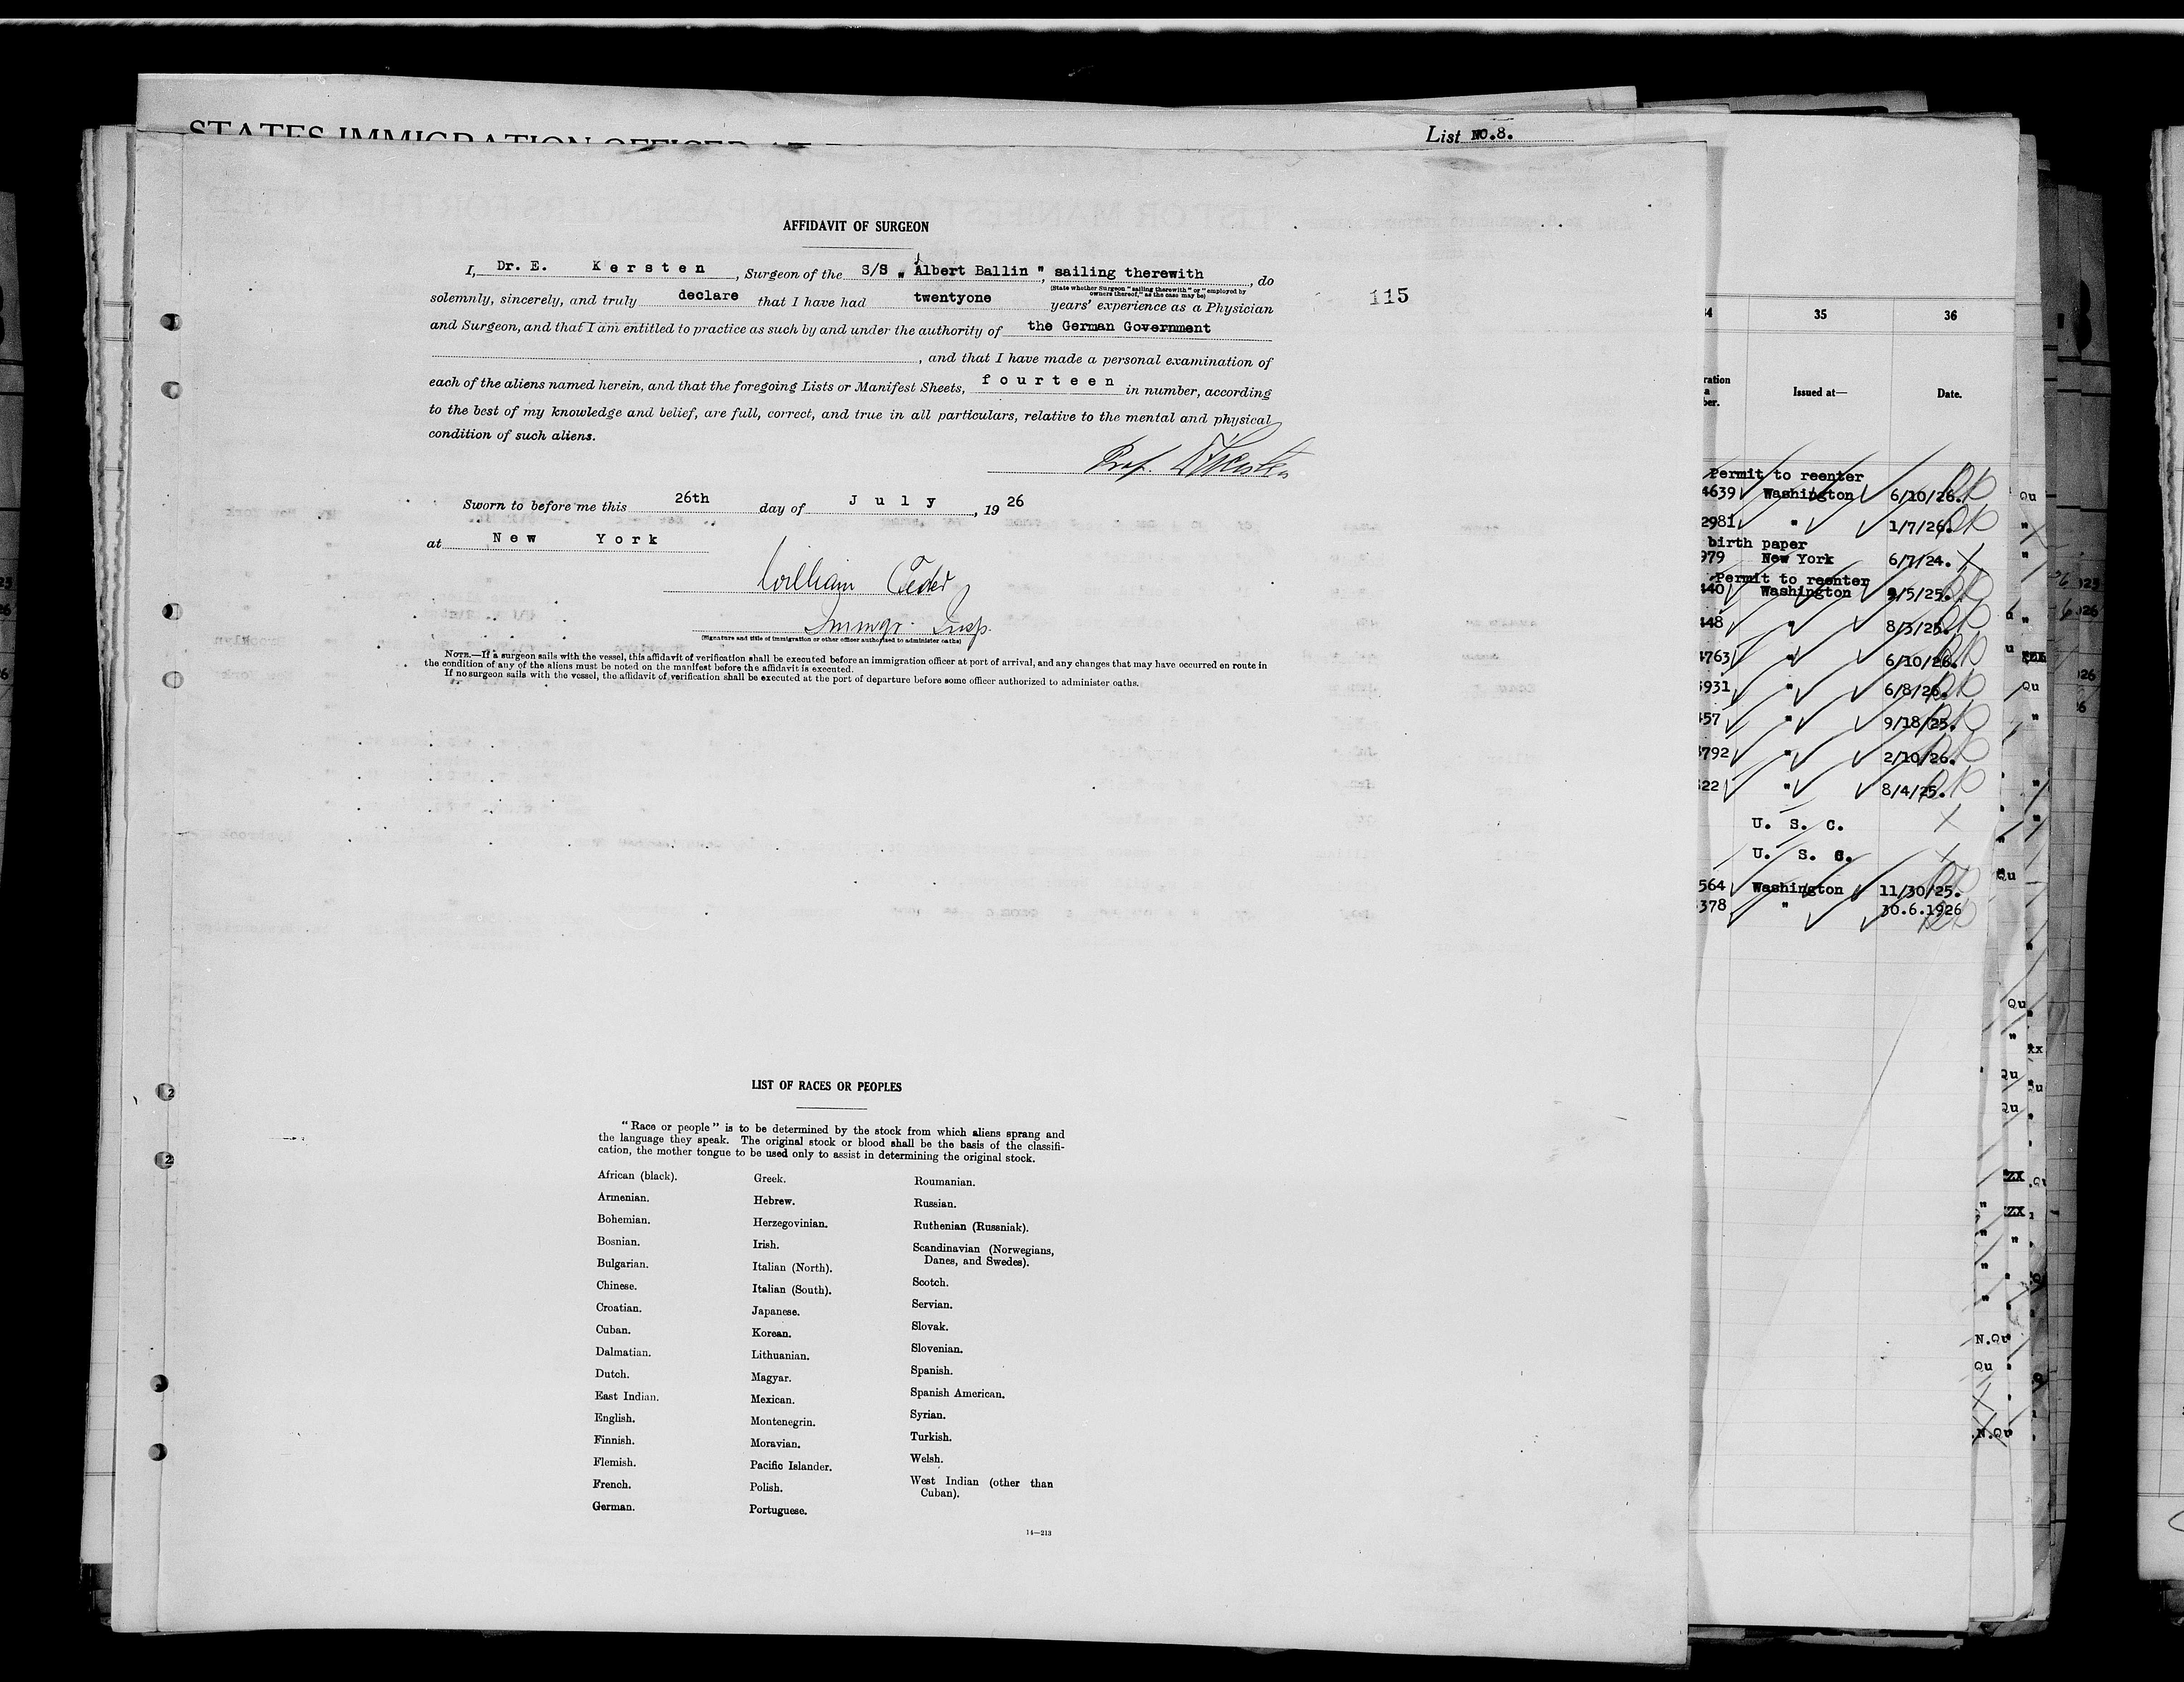 List NO.8.
AFFIDAVIT OF SURGEON
I, Dr. E. Kersten, Surgeon of the S/S „ Albert Ballin ", sailing therewith, do
(State whether Surgeon "sailing therewith" or "employed by
owners thereof," as the case may be)
solemnly, sincerely, and truly declare that I have had twentyone years' experience as a Physician
115
and Surgeon, and that I am entitled to practice as such by and under the authority of the German Government
, and that I have made a personal examination of
each of the aliens named herein, and that the foregoing Lists or Manifest Sheets, fourteen in number, according
to the best of my knowledge and belief, are full, correct, and true in all particulars, relative to the mental and physical
condition of such aliens.
Prof. Dr Kersten
Sworn to before me this 26th day of July, 19 26
at New York
William
Immgr. Insp.
(Signature and title of immigration or other officer authorized to administer oaths)
NOTE.—If a surgeon sails with the vessel, this affidavit of verification shall be executed before an immigration officer at port of arrival, and any changes that may have occurred en route in
the condition of any of the aliens must be noted on the manifest before the affidavit is executed.
If no surgeon sails with the vessel, the affidavit of verification shall be executed at the port of departure before some officer authorized to administer oaths.
LIST OF RACES OR PEOPLES
"Race or people" is to be determined by the stock from which aliens sprang and
the language they speak. The original stock or blood shall be the basis of the classifi-
cation, the mother tongue to be used only to assist in determining the original stock.
African (black).
Armenian.
Bohemian.
Bosnian.
Bulgarian.
Chinese.
Croatian.
Cuban.
Dalmatian.
Dutch.
East Indian.
English.
Finnish.
Flemish.
French.
German.
Greek.
Hebrew.
Herzegovinian.
Irish.
Italian (North).
Italian (South).
Japanese.
Korean.
Lithuanian.
Magyar.
Mexican.
Montenegrin.
Moravian.
Pacific Islander.
Polish.
Portuguese.
Roumanian.
Russian.
Ruthenian (Russniak).
Scandinavian (Norwegians,
Danes, and Swedes).
Scotch.
Servian.
Slovak.
Slovenian.
Spanish.
Spanish American.
Syrian.
Turkish.
Welsh.
West Indian (other than
Cuban).
14—213
35 36
Issued at— Date.
Permit to reenter
4639 Washington 6/10/26.
2981 " 1/7/26.
birth paper
979 New York 6/7/24.
Permit to reenter
440 Washington /5/25.
448 " 8/3/25.
4763 " 6/10/26.
3931 " 6/8/26.
457 " 9/18/25.
792 " 2/10/26.
22 " 8/4/25.
U. S. C.
U. S. C.
564 Washington 11/30/25.
378 " 30.6.1926